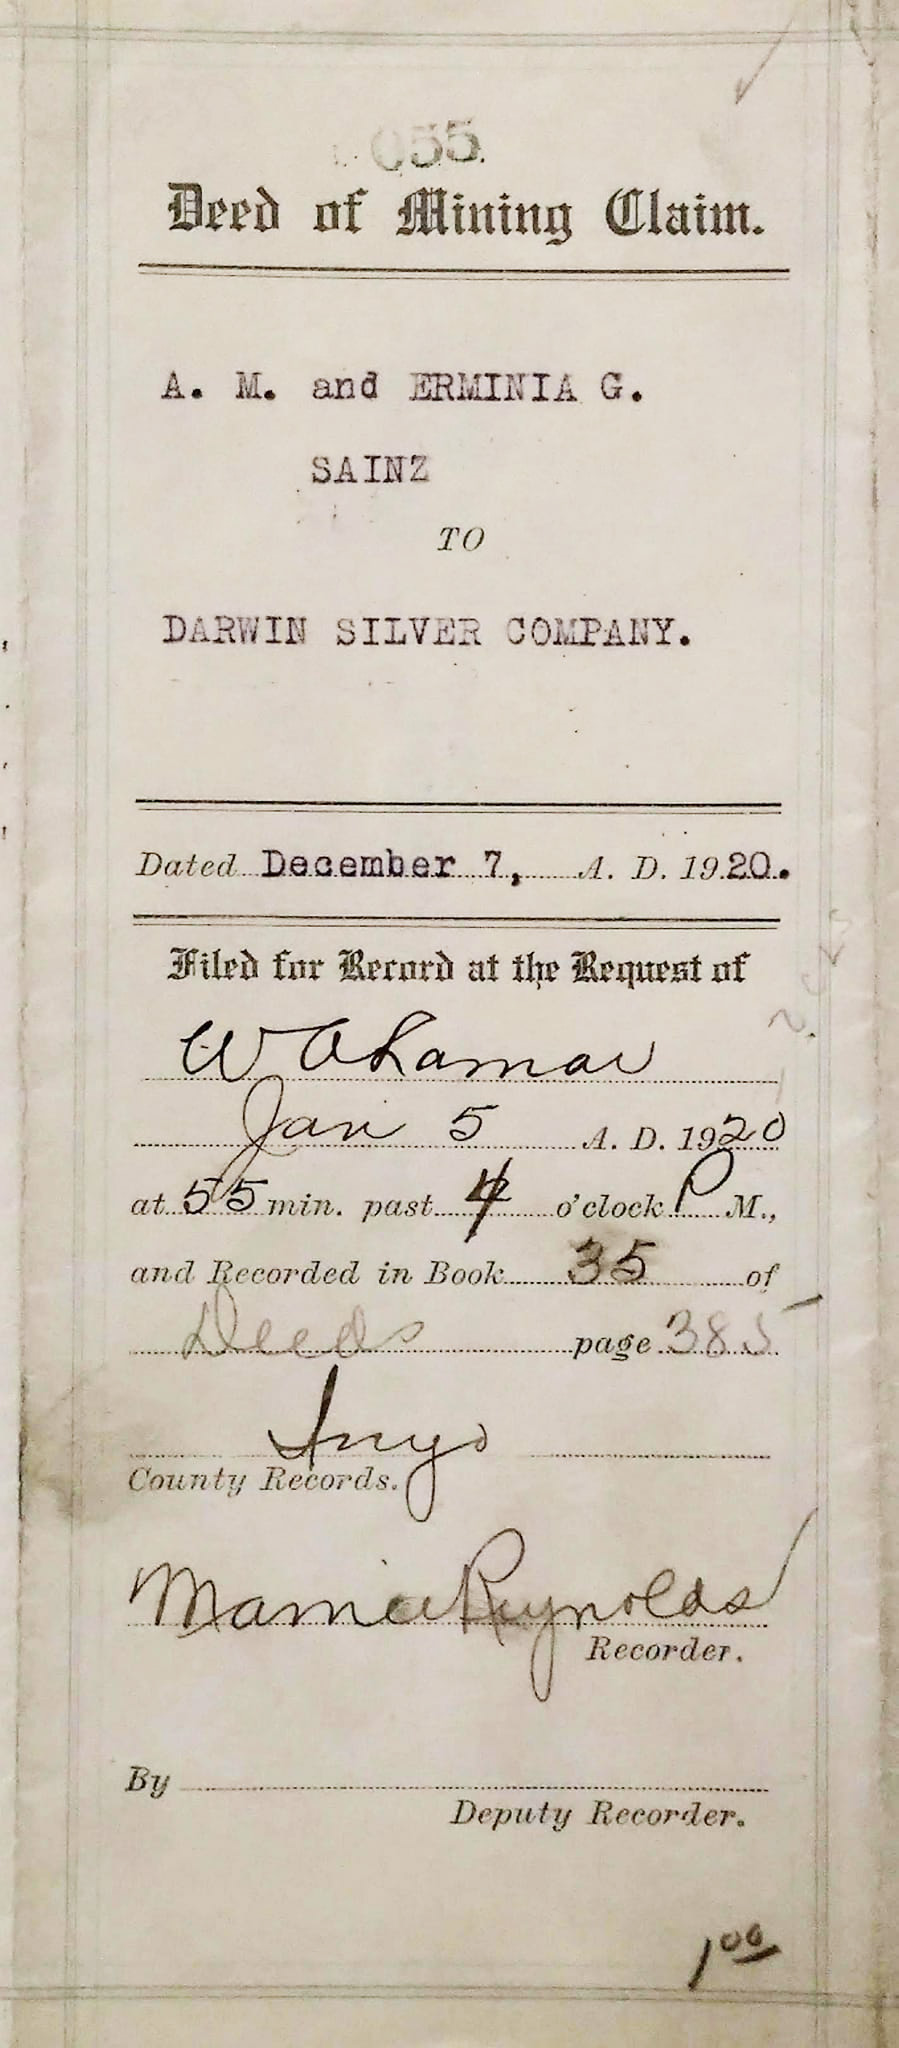 055.
Deed of Mining Claim.
A. M. and ERMINIA G.
SAINZ
TO
DARWIN SILVER COMPANY.
Dated December 7, A. D. 1920.
Filed for Record at the Request of
W A Lamar
Jan 5 A. D. 1920
at 55 min. past 4 o'clock P M.,
and Recorded in Book 35 of
Deeds page 385
Inyo
County Records.
Mamie Reynolds
Recorder.
By
Deputy Recorder.
1 00